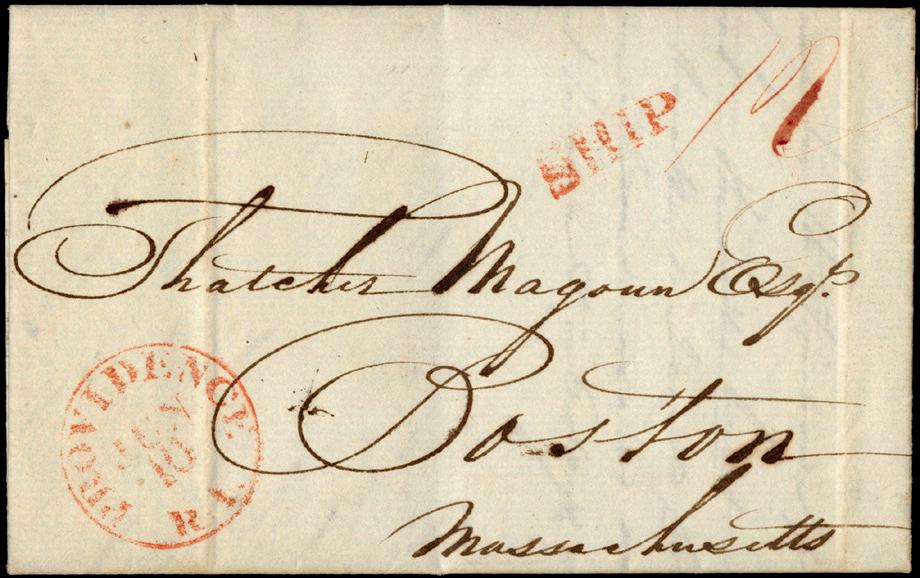 SHIP
Thatcher Magoun Esqr.
Boston
Massachusetts
PROVIDENCE
R.I.